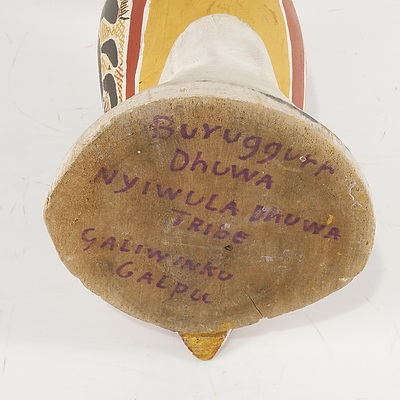 Buruggurr
Dhuwa
NYIWULA Dhuwa
TRIBE
GALIWINKU
GALPU